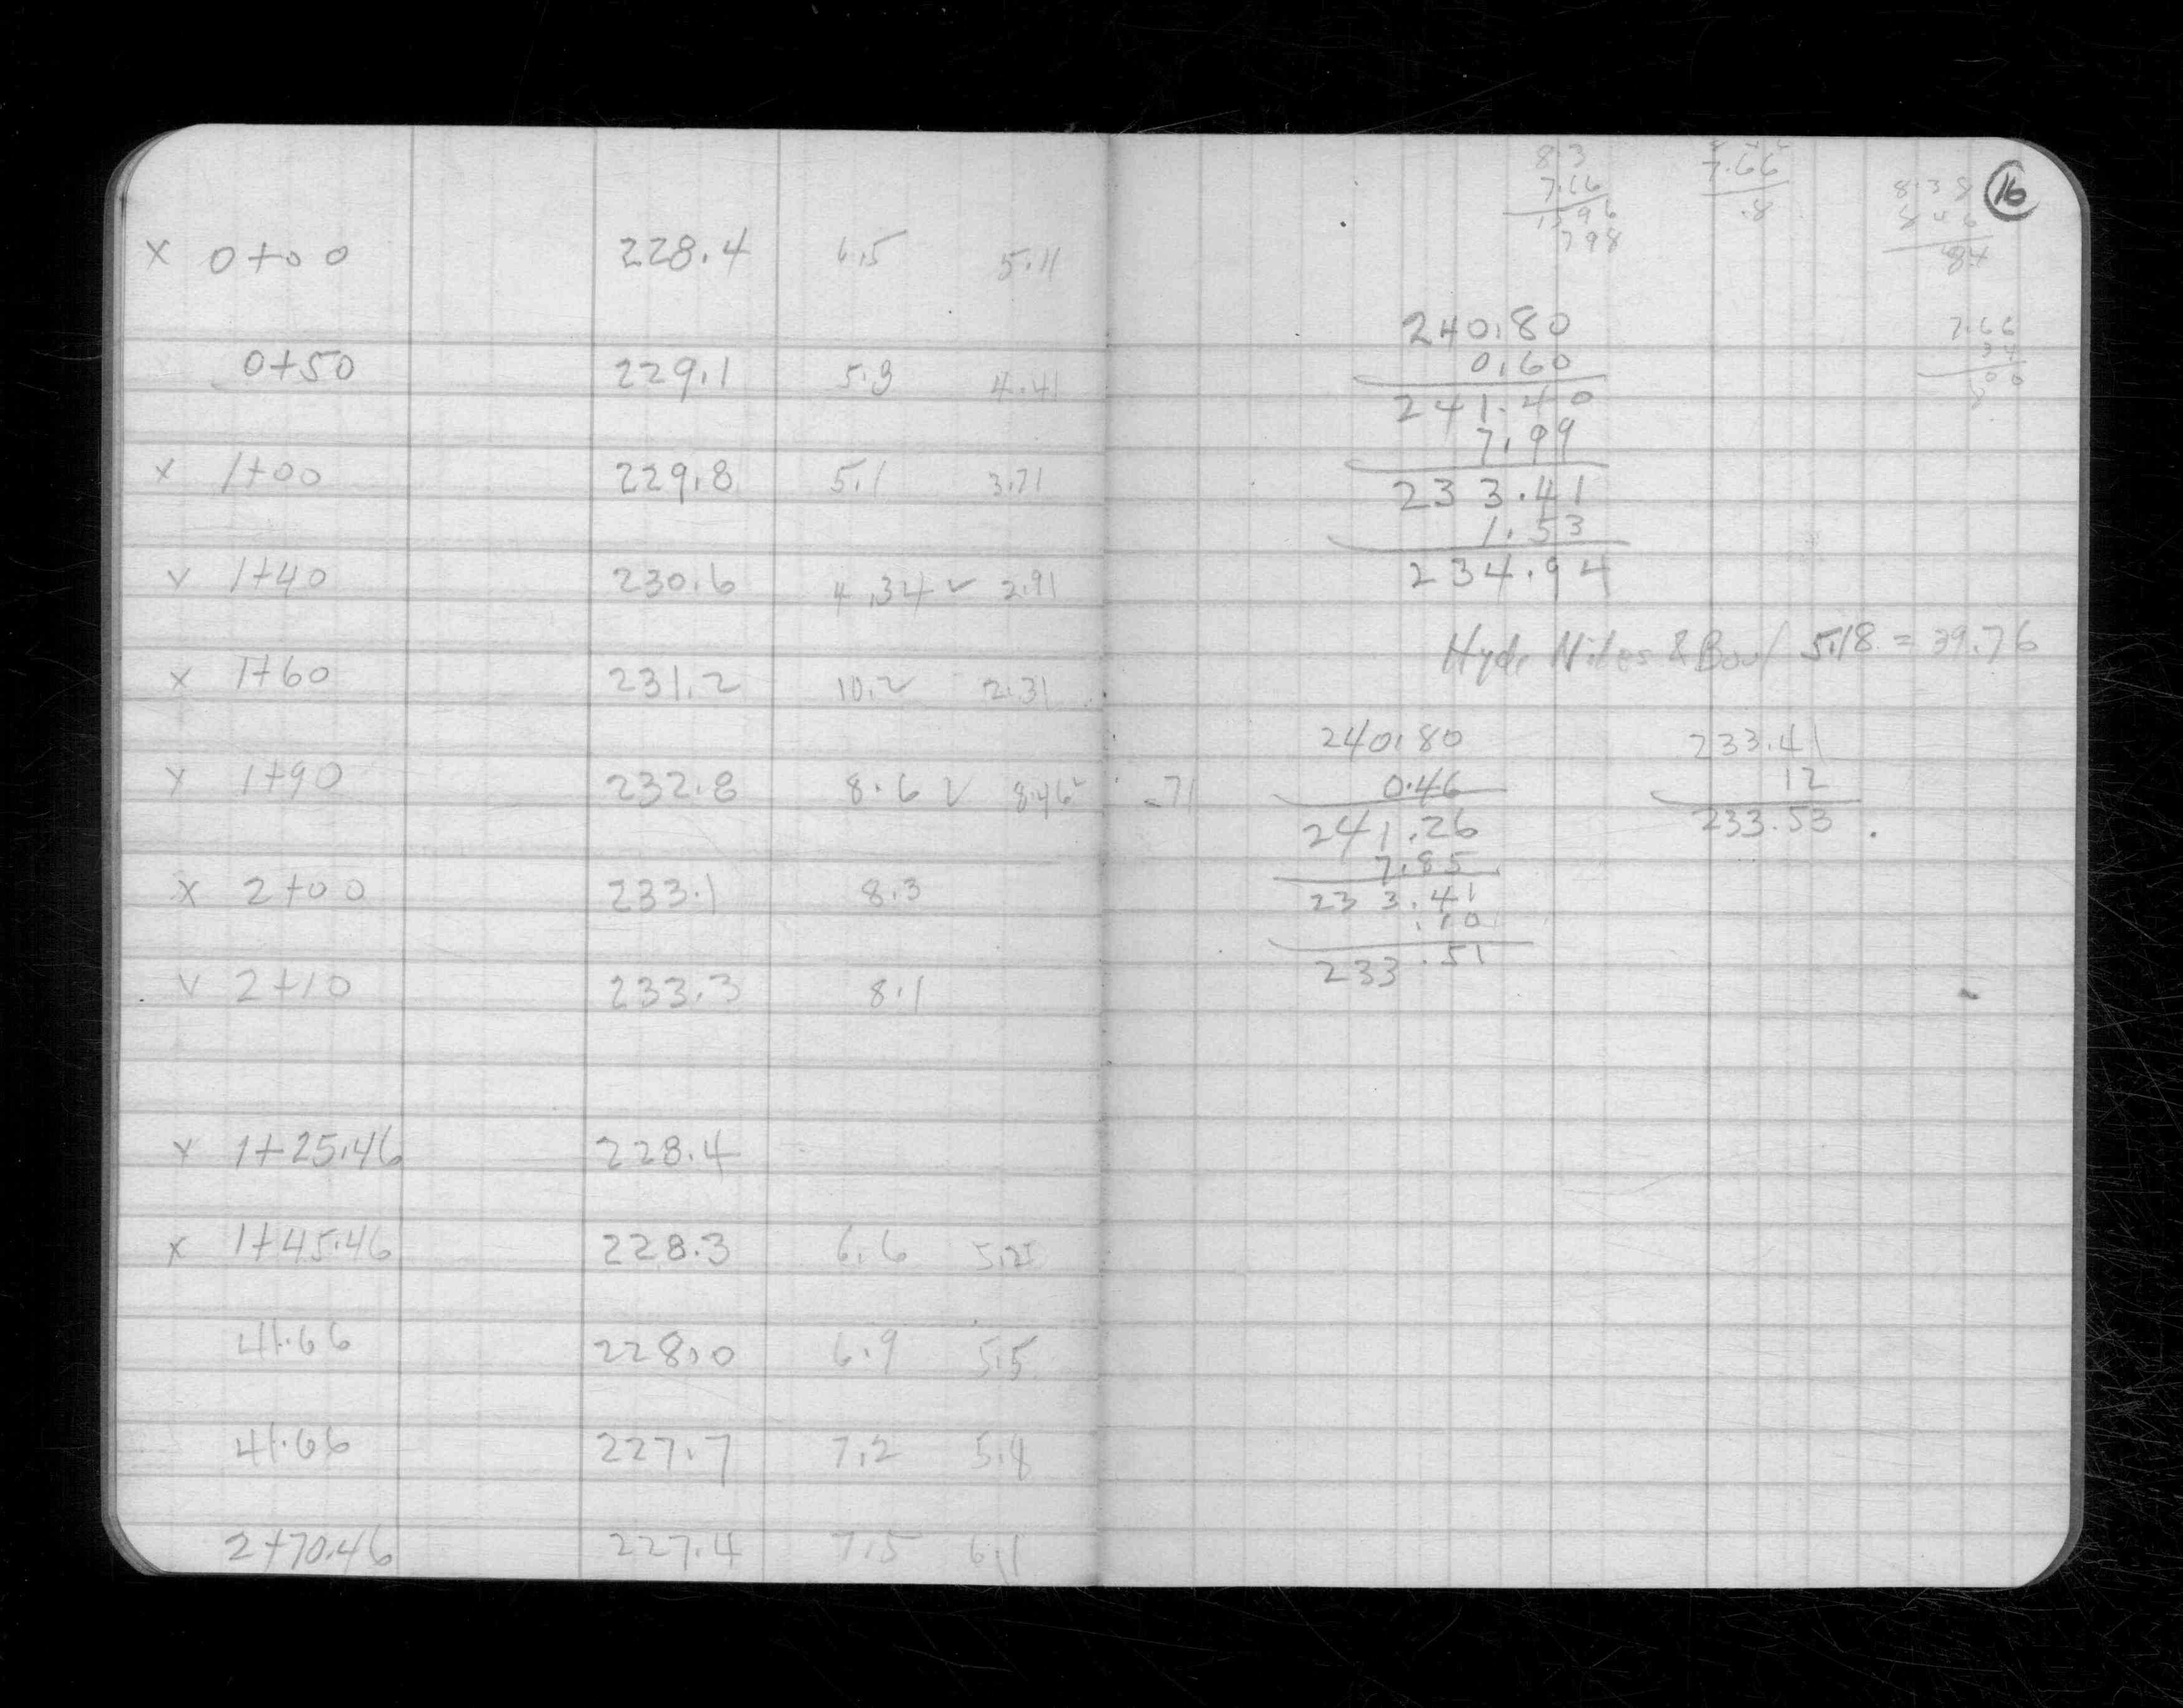 x 0+00 228.4 6.5 5.11
0+50 229.1 5.8 4.41
x 1+00 229.8 5.1 3.71
x 1+40 230.6 4.34 ✓ 2.91
x 1+60 231.2 10.2 2.31
x 1+90 232.8 8.6 ✓ 8.46 .71
x 2+00 233.1 8.3
x 2+10 233.3 8.1
x 1+25.46 228.4
x 1+45.46 228.3 6.6 5.2
41.66 228.0 6.9 5.5
41.66 227.7 7.2 5.8
2+70.46 227.4 7.5 6.1
16
8.3
7.66
.8
8.38
84
798
7.66
240.80
0.60
241.40
7.99
233.41
1.53
234.94
Hyde 5.18 = 39.76
240.80
0.46
241.26
7.85
233.41
.10
233.51
233.41
12
233.53